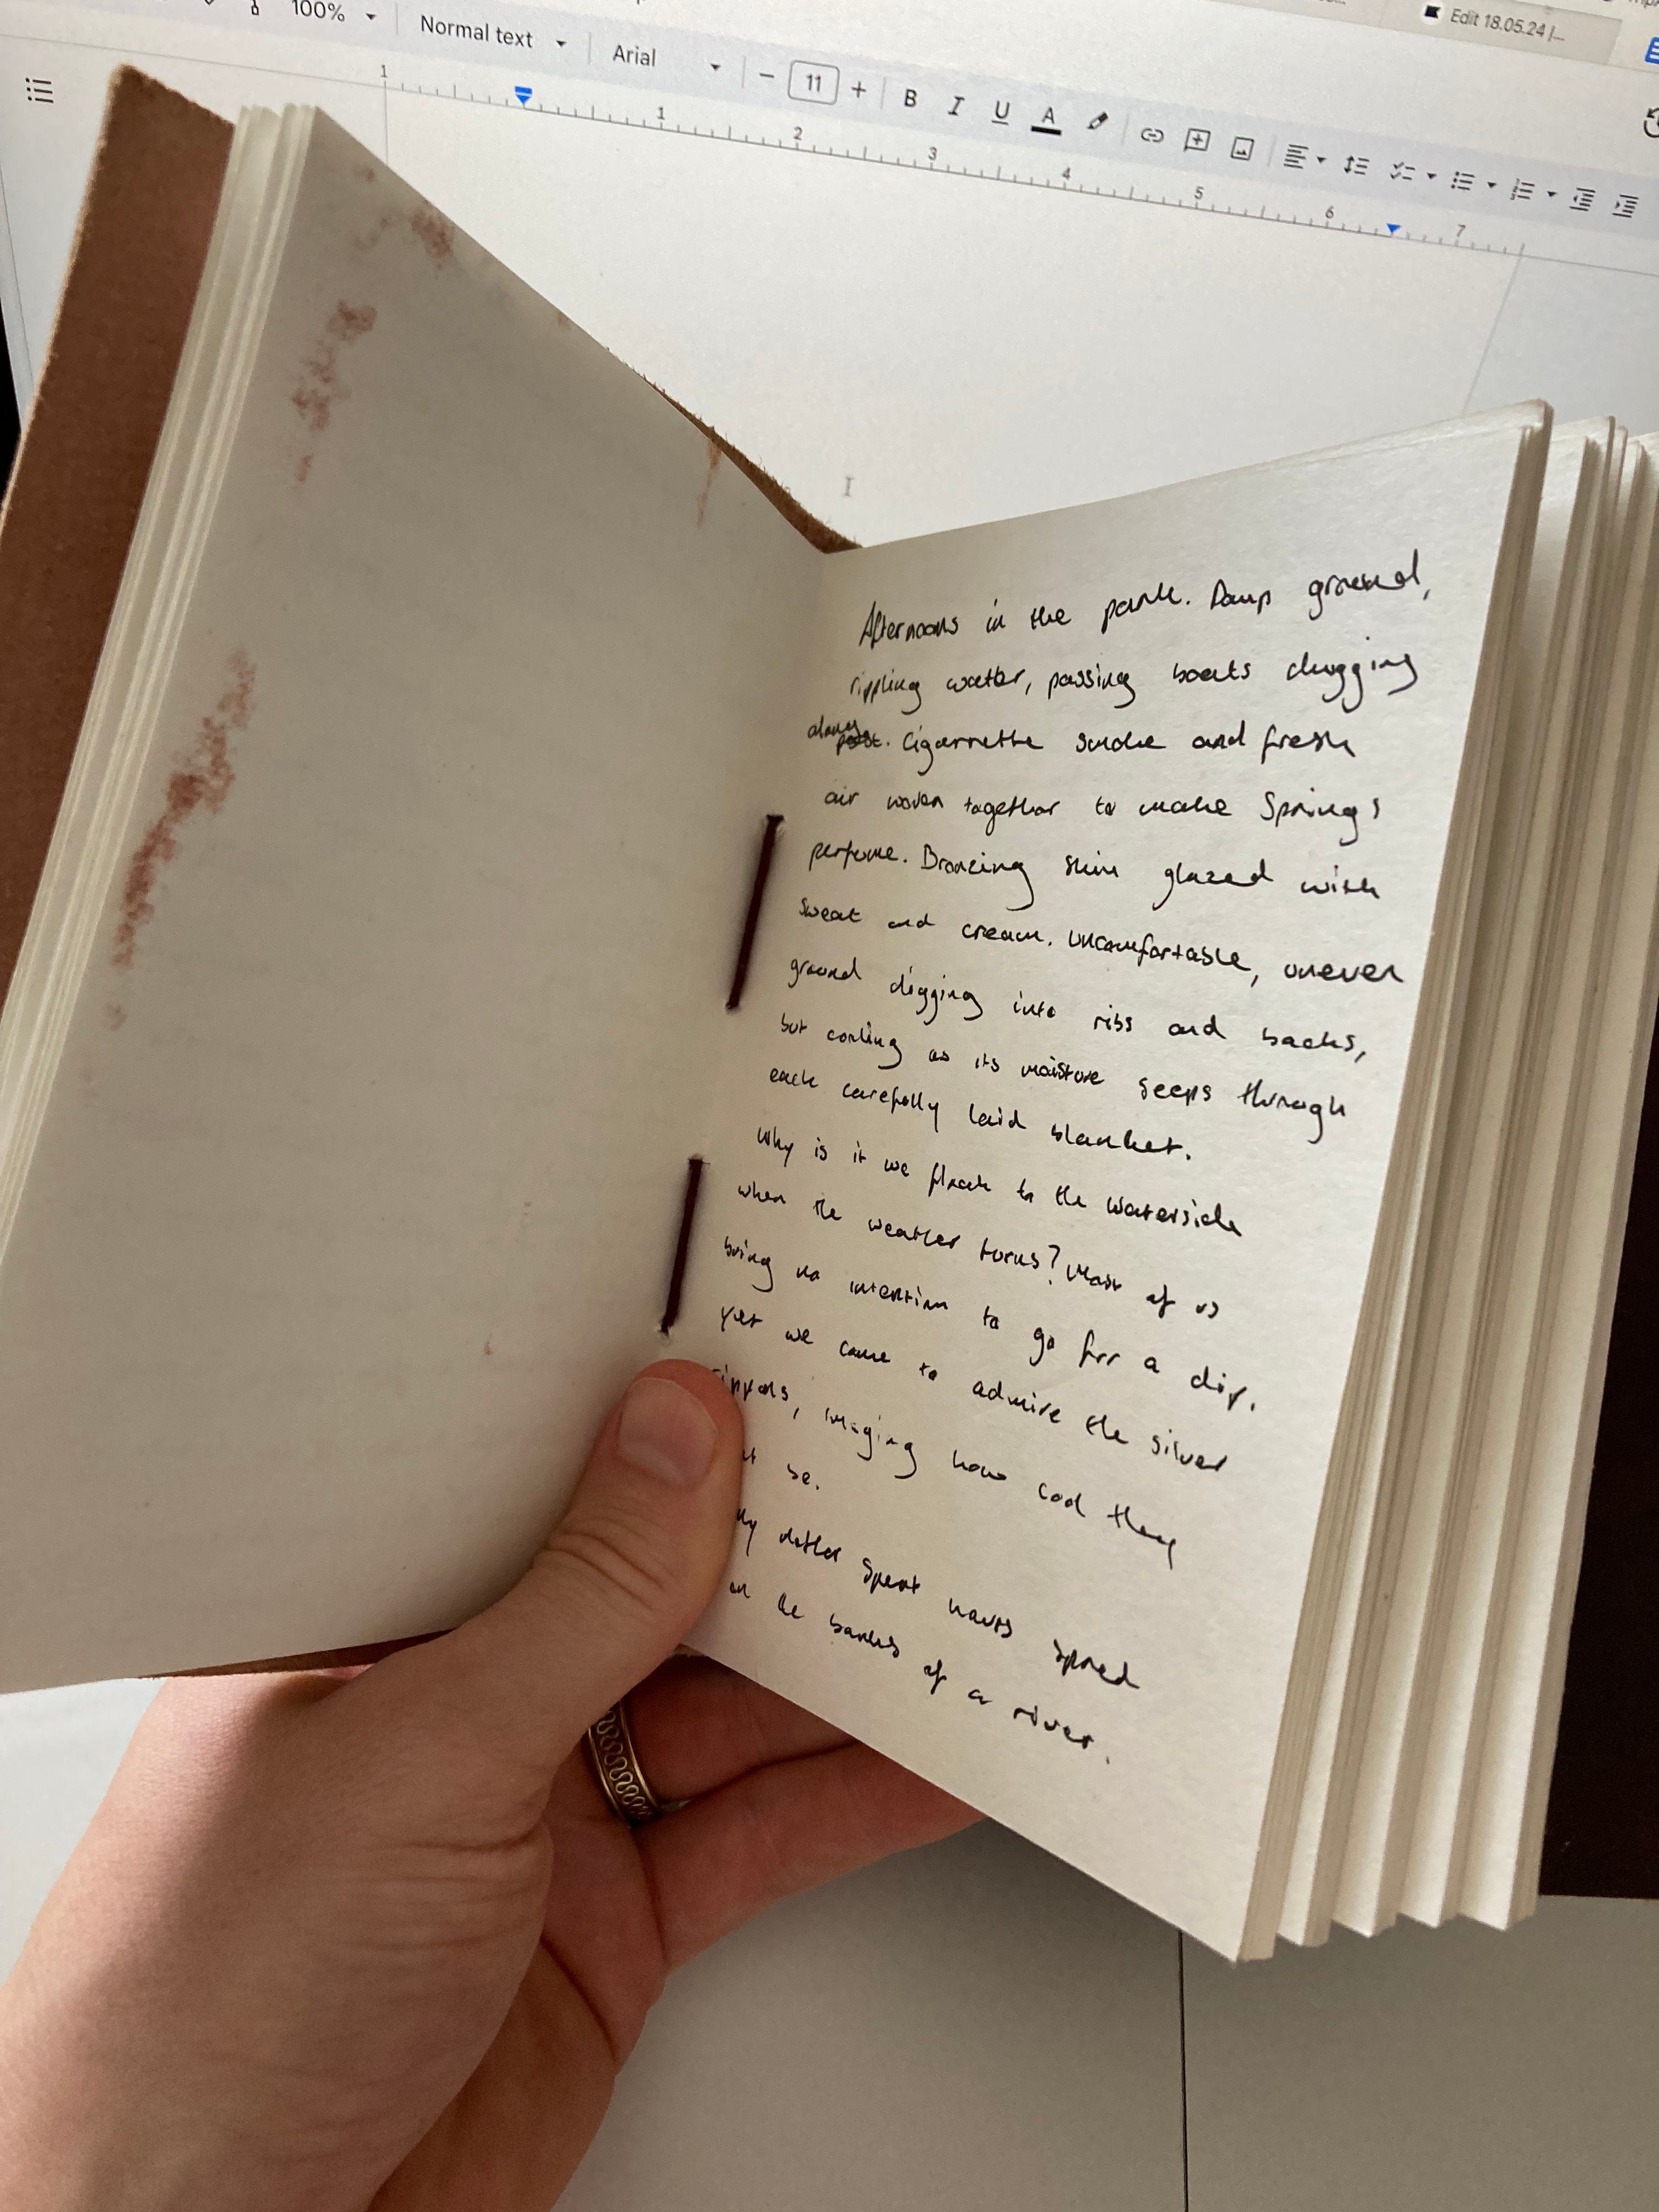 100%
Normal text
Arial
− 11 +
B I U A
Edit 18.05.24 |-...
1 1 2 3 4 5 6 7
Afternoons in the park. Damp ground,
rippling water, passing boats chugging
along. Cigarrette smoke and fresh
air woven together to make Spring's
perfume. Bronzing skin glazed with
sweat and cream. Uncomfortable, uneven
ground digging into ribs and backs,
but cooling as its moisture seeps through
each carefully laid blanket.
Why is it we flock to the waterside
when the weather turns? Most of us
bring no intention to go for a dip,
yet we came to admire the silver
imaging how cool they
be.
spent hours spread
on the banks of a river.